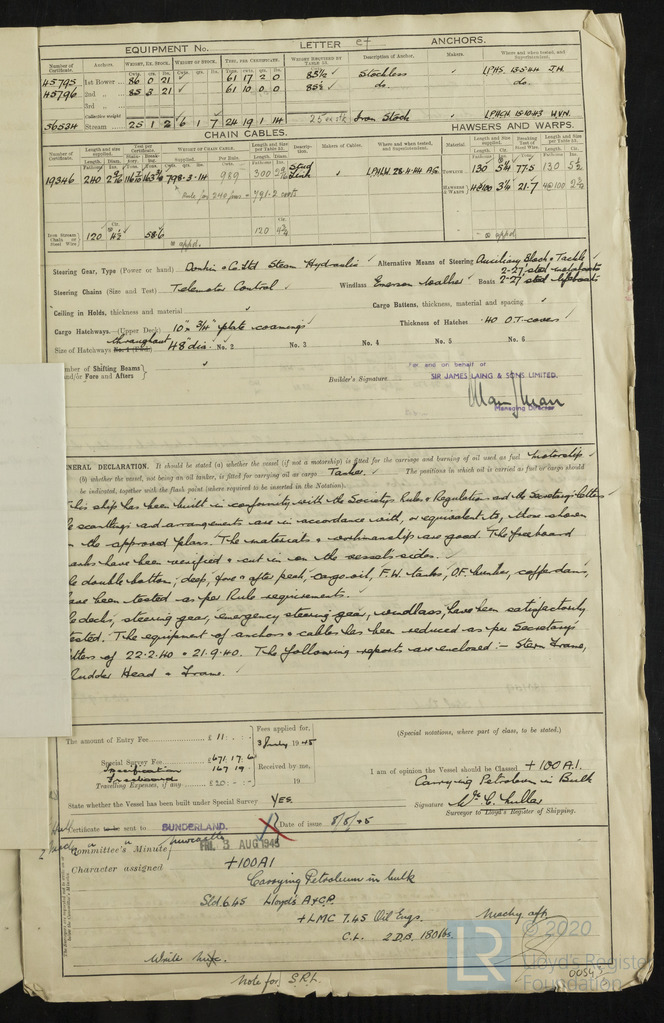 EQUIPMENT No. LETTER et ANCHORS.
Number of Certificate. Anchors. Weight, Ex. Stock. Weight of Stock. Test, per Certificate. Weight Required by Table 53. Description of Anchor. Makers. Where and when tested, and Superintendent.
45795 1st Bower 86 0 21 61 17 2 0 85½ Stockless LPHS. 15-5-44 J.H.
45796 2nd „ 85 3 21 61 10 0 0 85½ do. do.
3rd „
Collective weight
56534 Stream 25 1 2 6 1 7 24 19 1 14 25 ex stk Iron Stock LPHCH 15-10-43
CHAIN CABLES. HAWSERS AND WARPS.
19346 240 798-3-14 989 300 Stud Link LPHLW 28-4-44 A.G. Towline 130 5¼ 77.5 130 5½
Rule for 240 fms = 791-2 cwts Hawsers & Warps 4@100 3¼ 21.7 4@100 2¾
Iron Stream Chain or Steel Wire 120 4½ 58.6 120 4¾
Steering Gear, Type (Power or hand) Donkin & Co Ltd Steam Hydraulic Alternative Means of Steering Auxiliary Block & Tackle
Steering Chains (Size and Test) Telemotor Control Windlass Emerson Walker Boats 2-27' steel lifeboats
Ceiling in Holds, thickness and material Cargo Battens, thickness, material and spacing
Cargo Hatchways. (Upper Deck) 10" x 3/4" plate coamings Thickness of Hatches .40 O.T. covers
throughout
Size of Hatchways 48" dia. No. 2 No. 3 No. 4 No. 5 No. 6
Number of Shifting Beams
and/or Fore and Afters
For and on behalf of
SIR JAMES LAING & SONS LIMITED.
Builder's Signature
Managing Director
GENERAL DECLARATION. It should be stated (a) whether the vessel (if not a motorship) is fitted for the carriage and burning of oil used as fuel motorship.
(b) whether the vessel, not being an oil tanker, is fitted for carrying oil as cargo Tanker. The positions in which oil is carried as fuel or cargo should
be indicated, together with the flash point (where required to be inserted in the Notation).
This ship has been built in conformity with the Society's Rules & Regulations and the Secretary's letters
scantlings and arrangements are in accordance with, or equivalent to, those shown
the approved plans. The materials & workmanship are good. The freeboard
marks have been verified & cut in on the vessels sides.
double bottom, deep, fore & after peak, cargo oil, F.W. tanks, O.F. bunker, cofferdams,
have been tested as per Rule requirements.
decks, steering gear, emergency steering gear, windlass, have been satisfactorily
tested. The equipment of anchors & cables has been reduced as per Secretary's
letters of 22.2.40 & 21.9.40. The following reports are enclosed:- Stern Frame,
Rudder Head & Frame.
The amount of Entry Fee £ 11 Fees applied for, 3 July 1945 (Special notations, where part of class, to be stated.)
Special Survey Fee £671.17.6
Specification 167 19 Received by me,
Freeboard
Travelling Expenses, if any £20 19
I am of opinion the Vessel should be Classed +100A1.
Carrying Petroleum in Bulk
State whether the Vessel has been built under Special Survey Yes. Signature
Surveyor to Lloyd's Register of Shipping.
Certificate to be sent to SUNDERLAND. Date of issue 8/8/45
Newcastle
Committee's Minute FRI. 3 AUG 1945
Character assigned +100A1
Carrying Petroleum in bulk
Sld. 6.45 Lloyd's A&CP.
+LMC 7.45 Oil Engs.
C.L. 2 D.B. 180 lbs.
Write
Note for S.R.L.
LR © 2020
Lloyd's Register
Foundation